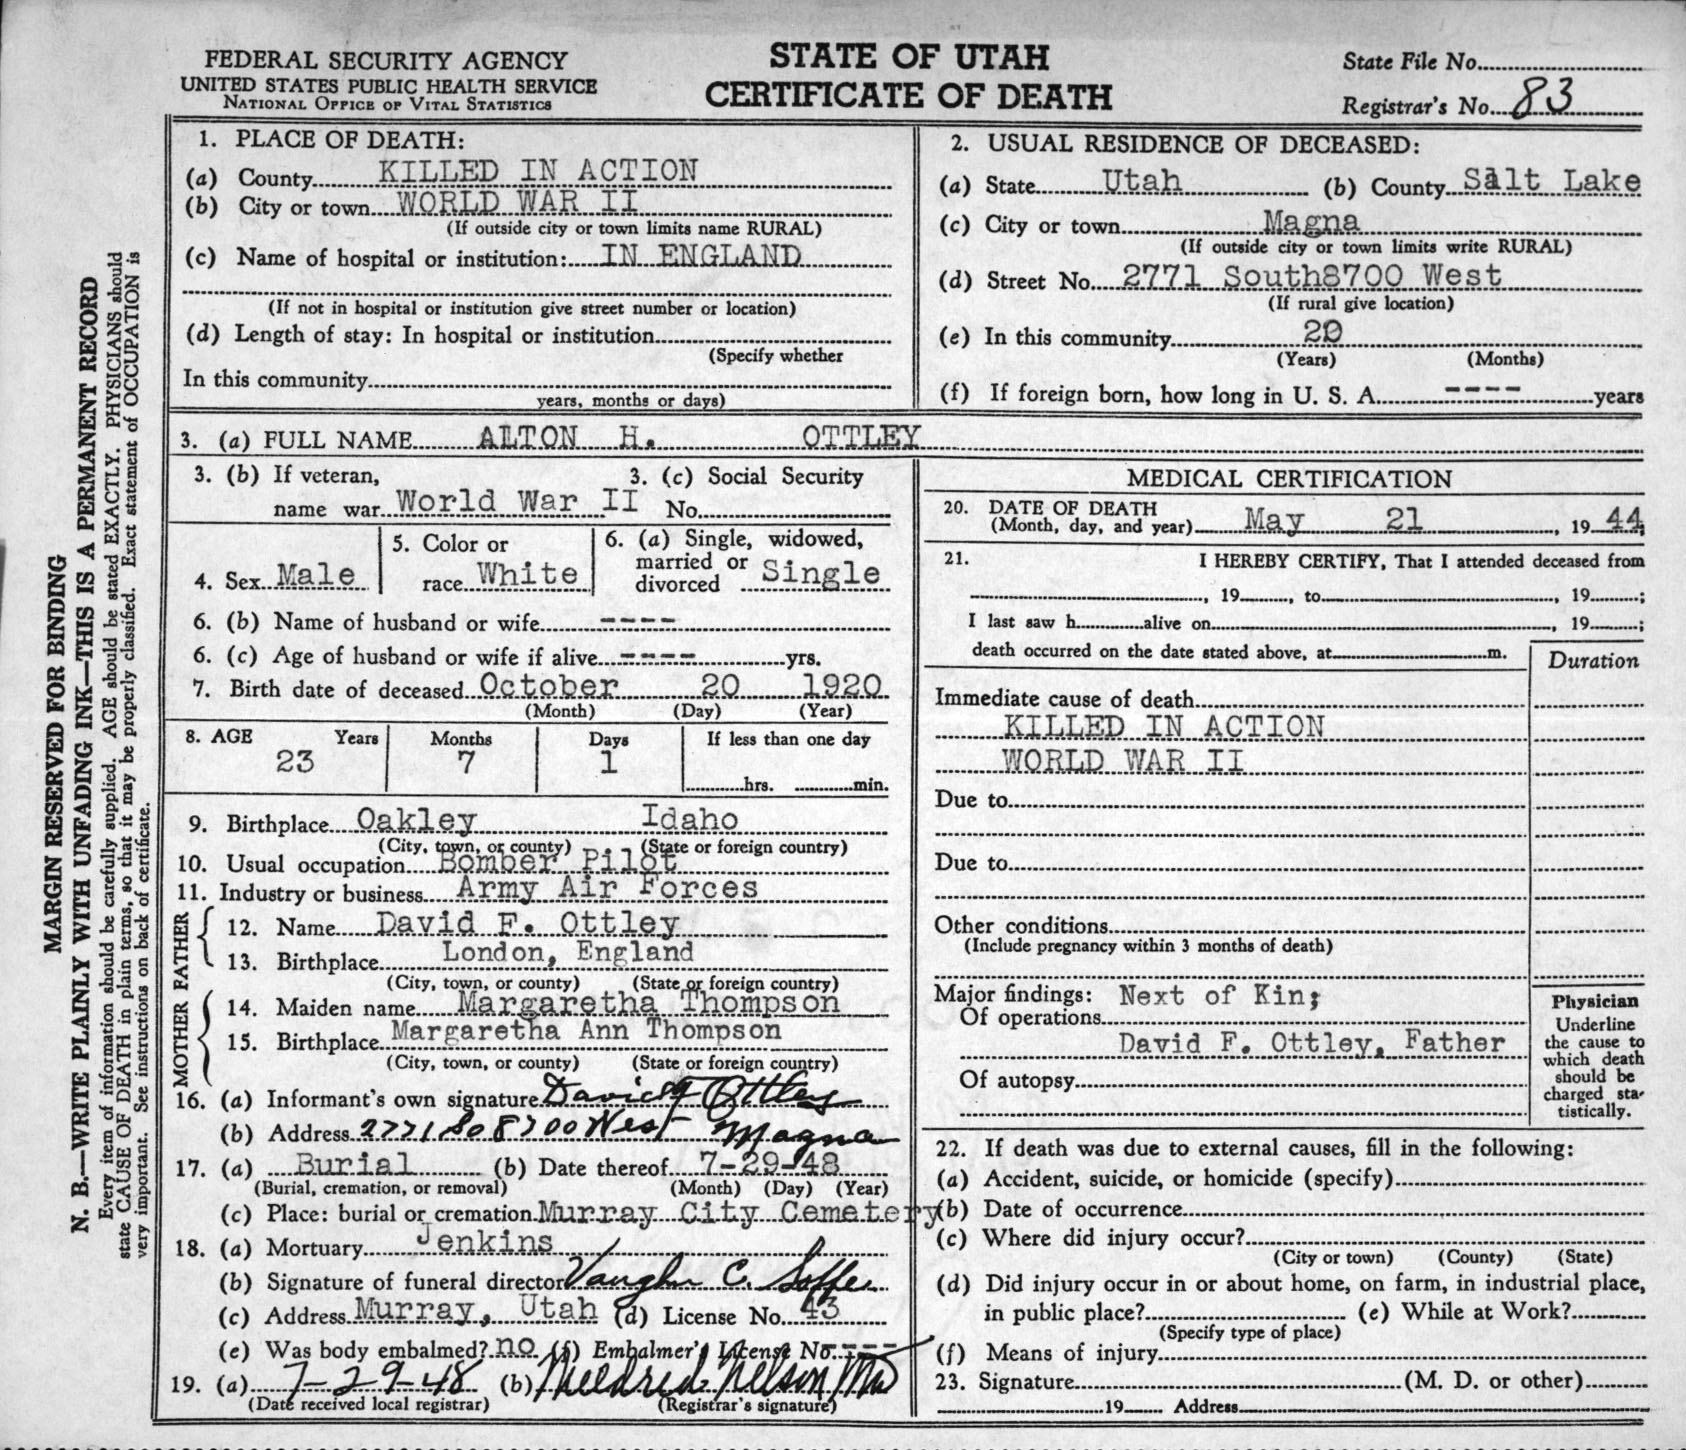 FEDERAL SECURITY AGENCY
UNITED STATES PUBLIC HEALTH SERVICE
NATIONAL OFFICE OF VITAL STATISTICS
STATE OF UTAH
CERTIFICATE OF DEATH
State File No.
Registrar's No. 83
MARGIN RESERVED FOR BINDING
N. B.—WRITE PLAINLY WITH UNFADING INK—THIS IS A PERMANENT RECORD
Every item of information should be carefully supplied. AGE should be stated EXACTLY. PHYSICIANS should
state CAUSE OF DEATH in plain terms, so that it may be properly classified. Exact statement of OCCUPATION is
very important. See instructions on back of certificate.
1. PLACE OF DEATH:
(a) County KILLED IN ACTION
(b) City or town WORLD WAR II
(If outside city or town limits name RURAL)
(c) Name of hospital or institution: IN ENGLAND
(If not in hospital or institution give street number or location)
(d) Length of stay: In hospital or institution
(Specify whether
In this community
years, months or days)
2. USUAL RESIDENCE OF DECEASED:
(a) State Utah (b) County Salt Lake
(c) City or town Magna
(If outside city or town limits write RURAL)
(d) Street No. 2771 South8700 West
(If rural give location)
(e) In this community 20
(Years) (Months)
(f) If foreign born, how long in U. S. A. ---- years
3. (a) FULL NAME ALTON H. OTTLEY
3. (b) If veteran, 3. (c) Social Security
name war World War II No.
4. Sex Male
5. Color or
race White
6. (a) Single, widowed,
married or
divorced Single
6. (b) Name of husband or wife ----
6. (c) Age of husband or wife if alive ---- yrs.
7. Birth date of deceased October 20 1920
(Month) (Day) (Year)
8. AGE Years Months Days If less than one day
23 7 1
hrs. min.
9. Birthplace Oakley Idaho
(City, town, or county) (State or foreign country)
10. Usual occupation Bomber Pilot
11. Industry or business Army Air Forces
FATHER
12. Name David F. Ottley
13. Birthplace London, England
(City, town, or county) (State or foreign country)
MOTHER
14. Maiden name Margaretha Thompson
15. Birthplace Margaretha Ann Thompson
(City, town, or county) (State or foreign country)
16. (a) Informant's own signature David F Ottley
(b) Address 2771 So 8700 West Magna
17. (a) Burial (b) Date thereof 7-29-48
(Burial, cremation, or removal) (Month) (Day) (Year)
(c) Place: burial or cremation Murray City Cemetery
18. (a) Mortuary Jenkins
(b) Signature of funeral director Vaughn C.
(c) Address Murray, Utah (d) License No. 43
(e) Was body embalmed? no (f) Embalmer's License No. ----
19. (a) 7-29-48 (b) Mildred Nelson
(Date received local registrar) (Registrar's signature)
MEDICAL CERTIFICATION
20. DATE OF DEATH
(Month, day, and year) May 21, 19 44
21. I HEREBY CERTIFY, That I attended deceased from
, 19 , to , 19 ;
I last saw h alive on , 19 ;
death occurred on the date stated above, at m.
Duration
Immediate cause of death
KILLED IN ACTION
WORLD WAR II
Due to
Due to
Other conditions
(Include pregnancy within 3 months of death)
Major findings: Next of Kin;
Of operations
David F. Ottley, Father
Of autopsy
Physician
Underline
the cause to
which death
should be
charged sta-
tistically.
22. If death was due to external causes, fill in the following:
(a) Accident, suicide, or homicide (specify)
(b) Date of occurrence
(c) Where did injury occur?
(City or town) (County) (State)
(d) Did injury occur in or about home, on farm, in industrial place,
in public place? (e) While at Work?
(Specify type of place)
(f) Means of injury
23. Signature (M. D. or other)
19 Address